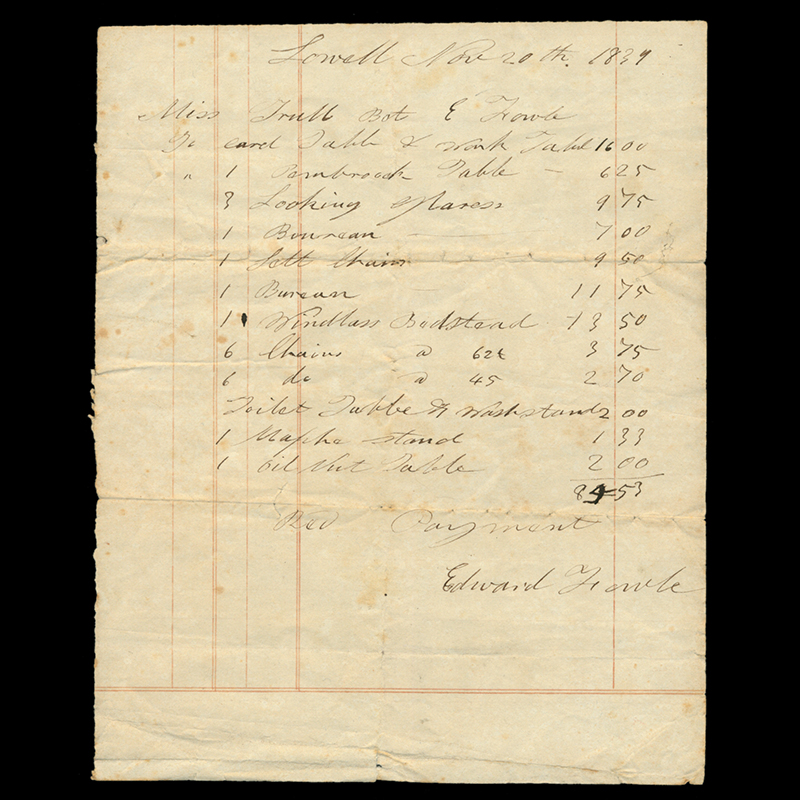 Lowell Nov 20th. 1839
Miss Trull Bot E Fowle
To card Table & Work Table 16 00
" 1 Pembroock Table - 6 25
3 Looking glasess 9 75
1 Boureau 7 00
1 Sett Chairs 9 50
1 Bureau 11 75
1 Windlass Bedstead 13 50
6 Chairs a 62½ 3 75
6 do a 45 2 70
Toilet Table & Washstand 2 00
1 Maple stand 1 33
1 Oil Nut Table 2 00
85 53
Recd Payment
Edward Fowle